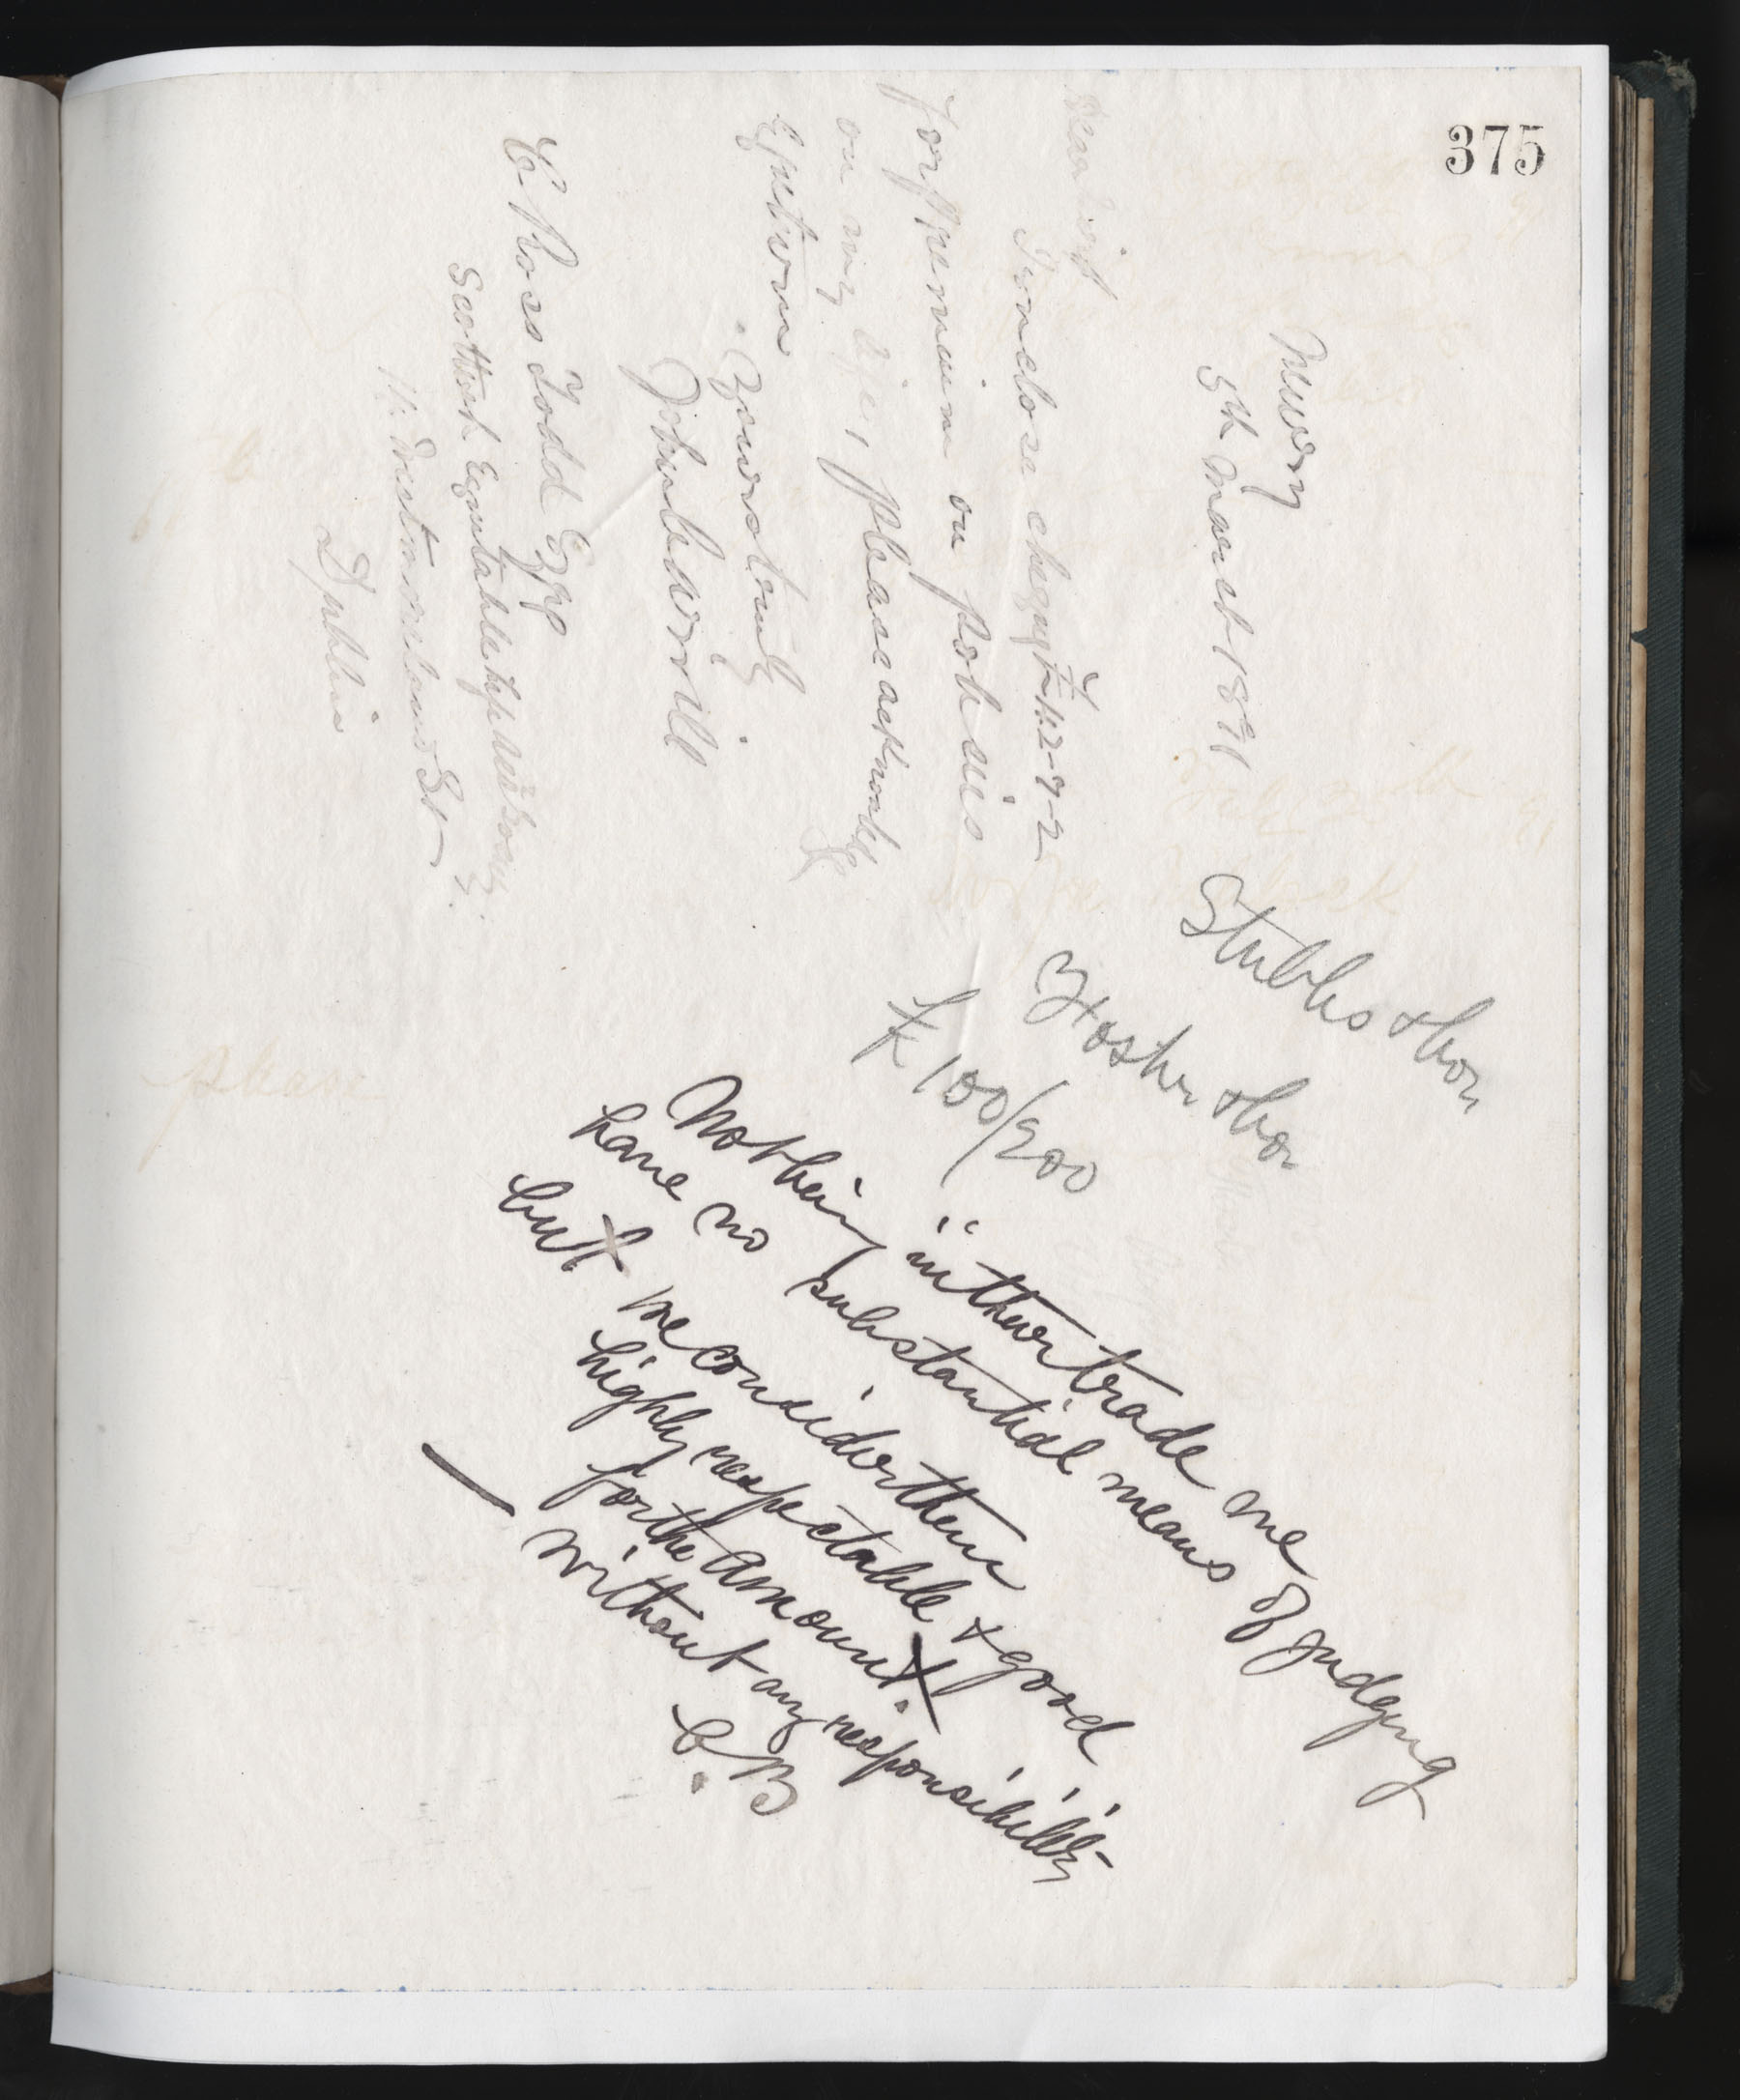 375
Newry
5th March 1891
Dear Sir
I enclose cheque £42-7-2
for premium on policies
on my life, please acknowledge
& return
Yours truly
E Ross Todd Esqre
Scottish Equitable Life Ass Socy
Westmoreland St
Dublin
Stubbs & Coy
Foster & Coy
£100/200
Not being in their trade we
have no substantial means of judging
but we consider them
highly respectable & good
for the amount.
Without any responsibility
please